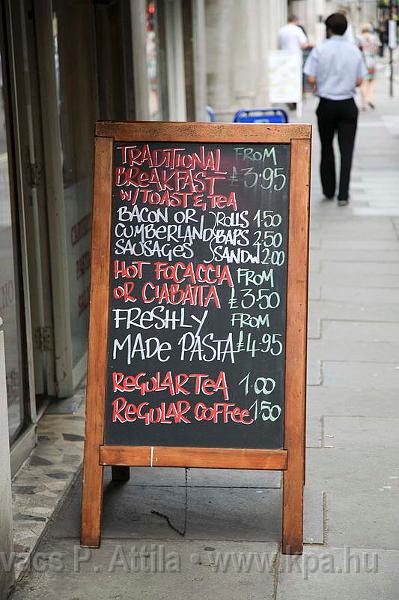 TRADITIONAL FROM
BREAKFAST £3.95
W/TOAST &, TEA
BACON OR ROLLS 1.50
CUMBERLAND BAPS 2.50
SAUSAGES SANDW 2.00
HOT FOCACCIA FROM
OR CIABATTA £3.50
FRESHLY FROM
MADE PASTA £4.95
REGULAR TEA 1.00
REGULAR COFFEE 1.50
vacs P. Attila • www.kpa.hu